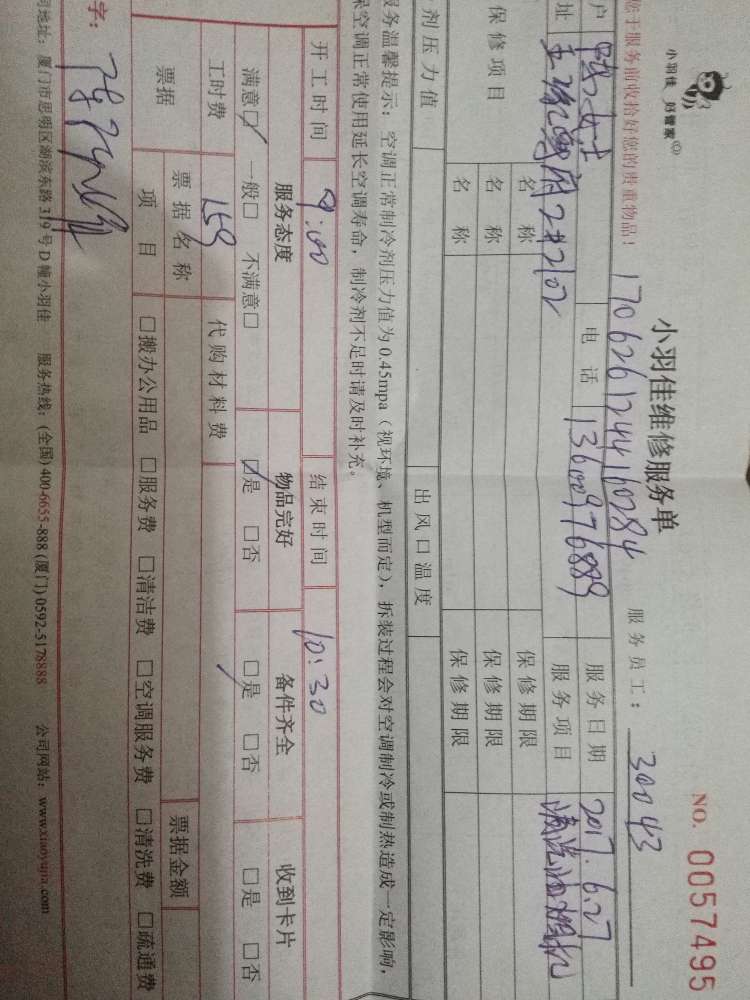 小羽佳 好管家
小羽佳维修服务单
NO. 0057495
您于服务前收拾好您的贵重物品！
1706261244160284
服务员工：30043
户
女士
电话
13600976889
服务日期
2017.6.27
址
2#2102
服务项目
清洗油烟机
保修项目
名称
保修期限
名称
保修期限
名称
保修期限
剂压力值
出风口温度
服务温馨提示：空调正常制冷剂压力值为0.45mpa（视环境、机型而定），拆装过程会对空调制冷或制热造成一定影响，
保空调正常使用延长空调寿命，制冷剂不足时请及时补充。
开工时间
9:00
结束时间
10:30
服务态度
物品完好
备件齐全
收到卡片
满意☑ 一般□ 不满意□
☑是 □否
☑是 □否
□是 □否
工时费
159
代购材料费
票据
票据名称
票据金额
项目
□搬办公用品 □服务费 □清洁费 □空调服务费 □清洗费 □疏通费
字：
司地址：厦门市思明区湖滨东路319号D幢小羽佳 服务热线：(全国)400-6655-888 (厦门)0592-5178888 公司网站：www.xiaoyujia.com